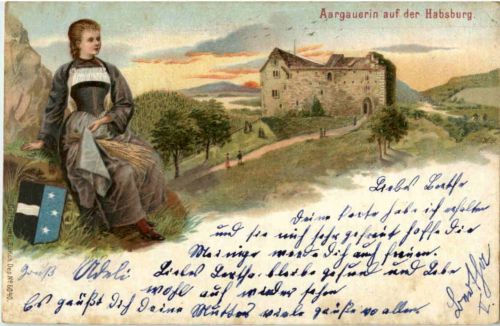 Aargauerin auf der Habsburg.
Liebe Bertha
Deine Karte habe ich erhalten
und sie mich sehr gefreut hoffe die
Meinige werde Dich auch freuen.
Gruß Adeli Liebe Bertha bleibe gesund und Lebe
wohl auf wieder sehen
Es grüßt Dich Deine Mutter viele grüße von allen
Dep. Nº